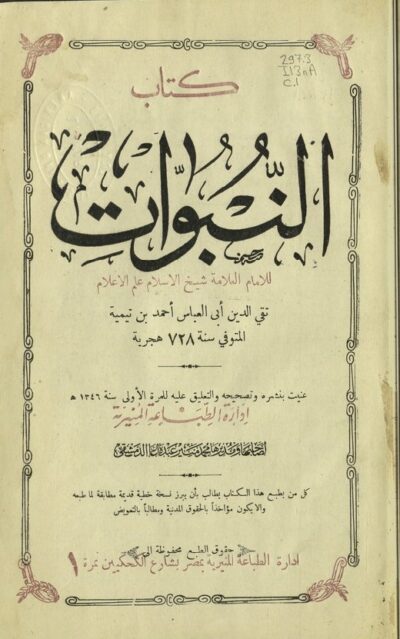 297.3
I13nA
C.1
كتاب
النُّبُوَّاتُ
للامام العلامة شيخ الاسلام علم الاعلام
تقي الدين أبى العباس أحمد بن تيمية
المتوفي سنة ٧٢٨ هجرية
عنيت بنشره وتصحيحه والتعليق عليه للمرة الأولى سنة ١٣٤٦ ه
إدارة الطباعة المنيرية
لصاحبها ومديرها محمد منير عبده أغا الدمشقى
كل من يطبع هذا الكتاب يطالب بأن يبرز نسخة خطية قديمة مطابقة لما طبعه
والا يكون مؤاخذاً بالحقوق المدنية ومطالباً بالتعويض
حقوق الطبع محفوظة الى
ادارة الطباعة المنيرية بمصر بشارع الكحكيين نمرة ١